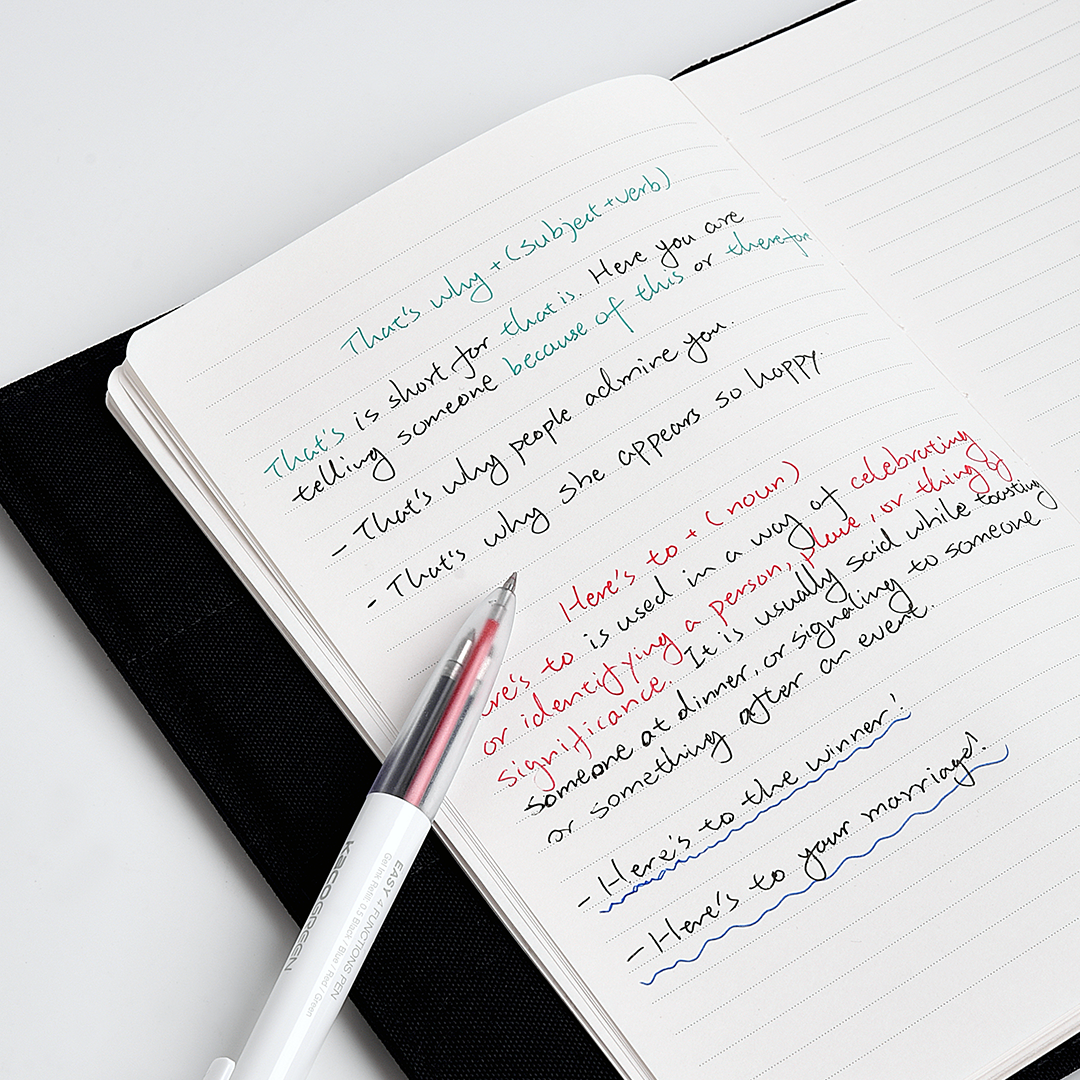 That's why + (Subject + verb)
That's is short for that is. Here you are
telling someone because of this or therefore
- That's why people admire you.
- That's why she appears so happy.
Here's to + (noun)
ere's to is used in a way of celebrating
or identifying a person, place, or thing of
significance. It is usually said while toasting
someone at dinner, or signaling to someone
or something after an event.
- Here's to the winner!
- Here's to your marriage!
KACOGREEN
EASY 4 FUNCTIONS PEN
Gel Ink Refill: 0.5 Black / Blue / Red / Green